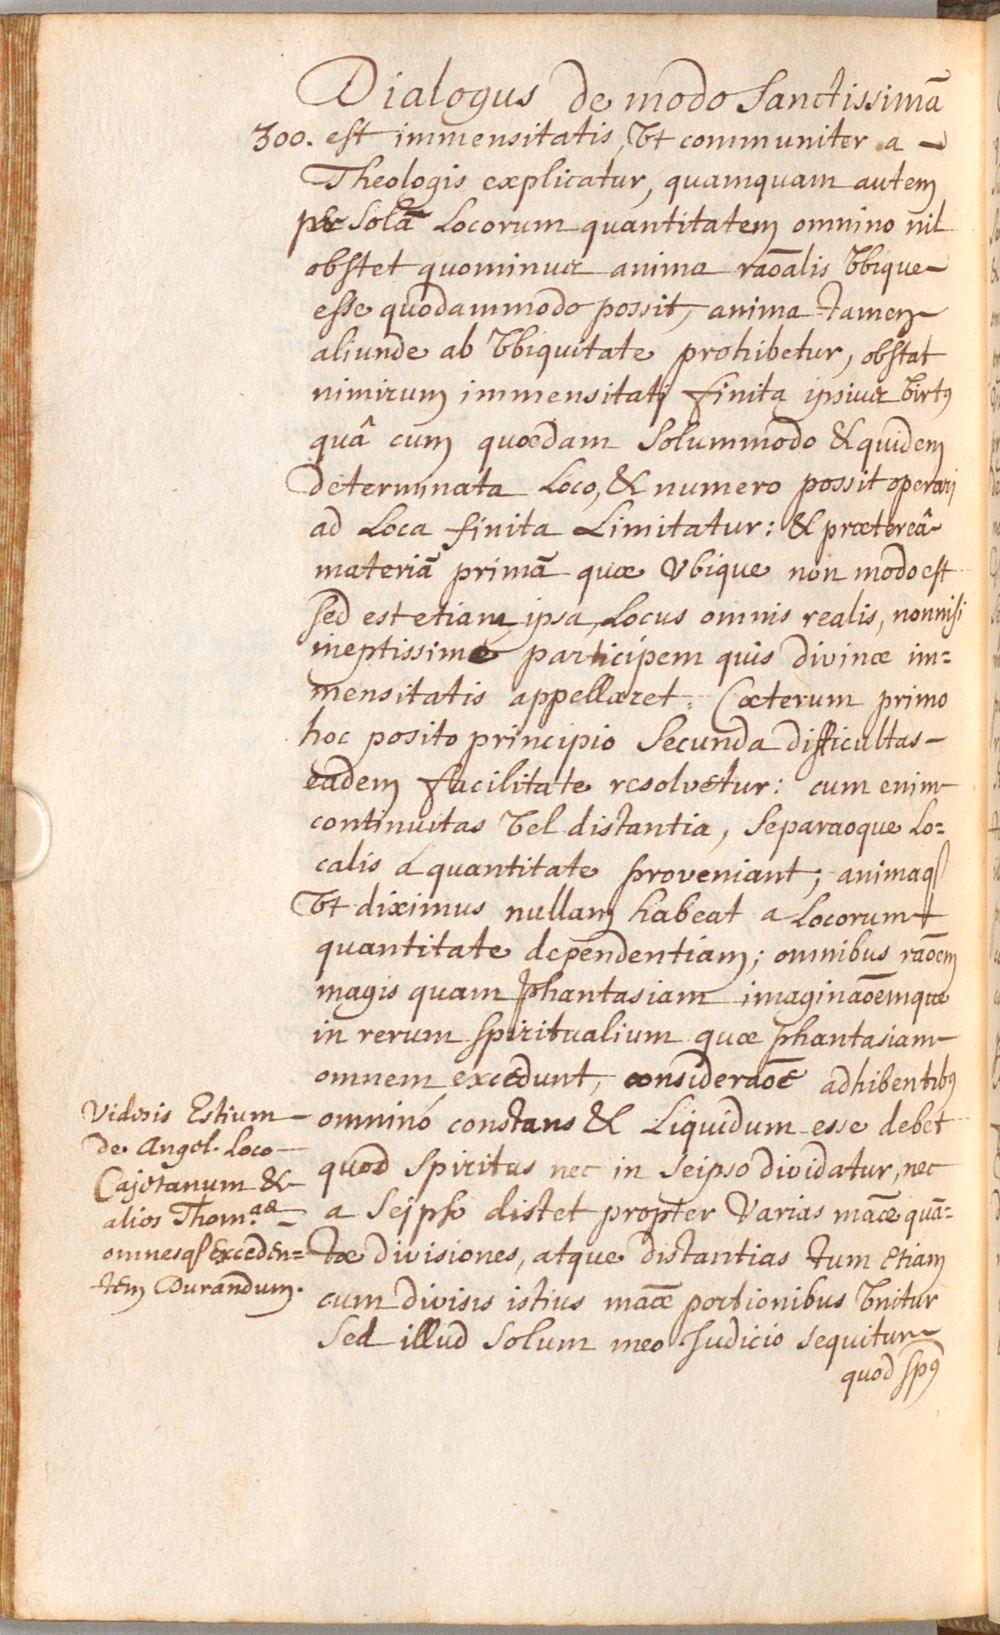 Dialogus de modo Sanctissimā
300. est immensitatis, Vt communiter a
Theologis explicatur, quamquam autem
per Solā Locorum quantitatem omnino nil
obstet quominus anima raōalis Vbique
esse quodammodo possit, anima tamen
aliunde ab Vbiquitate prohibetur, obstat
nimirum immensitati finita ipsius Virtꝰ
quâ cum quædam Solummodo & quidem
determinata Loco, & numero possit operari
ad Loca finita Limitatur: & prætereâ
materiā primā quæ Vbique non modo est
sed est etiam ipsa Locus omnis realis, non nisi
ineptissime participem quis divinæ im=
mensitatis appellaret. Cæterum primo
hoc posito principio Secunda difficultas
eadem facilitate resolvetur: cum enim
continuitas Vel distantia, Separaoque Lo=
calis à quantitate proveniant; animaqꝫ
Vt diximus nullam habeat a Locorum
quantitate dependentiam; omnibus raōem
magis quam phantasiam imaginaōemque
in rerum spiritualium quæ phantasiam
omnem excedunt, consideraōe adhibentibꝰ
omninó constans & Liquidum esse debet
quod Spiritus nec in Seipso dividatur, nec
a Seipso distet propter Varias maæ quā=
tæ divisiones, atque distantias tum etiam
cum divisis istius maæ portionibus Vnitur
Sed illud Solum meo Judicio sequitur
quod spꝰ
Videsis Estium
de Angel. Loco
Cajetanum &
alios Thom.as
omnesqꝫ exceden=
tem Durandum.